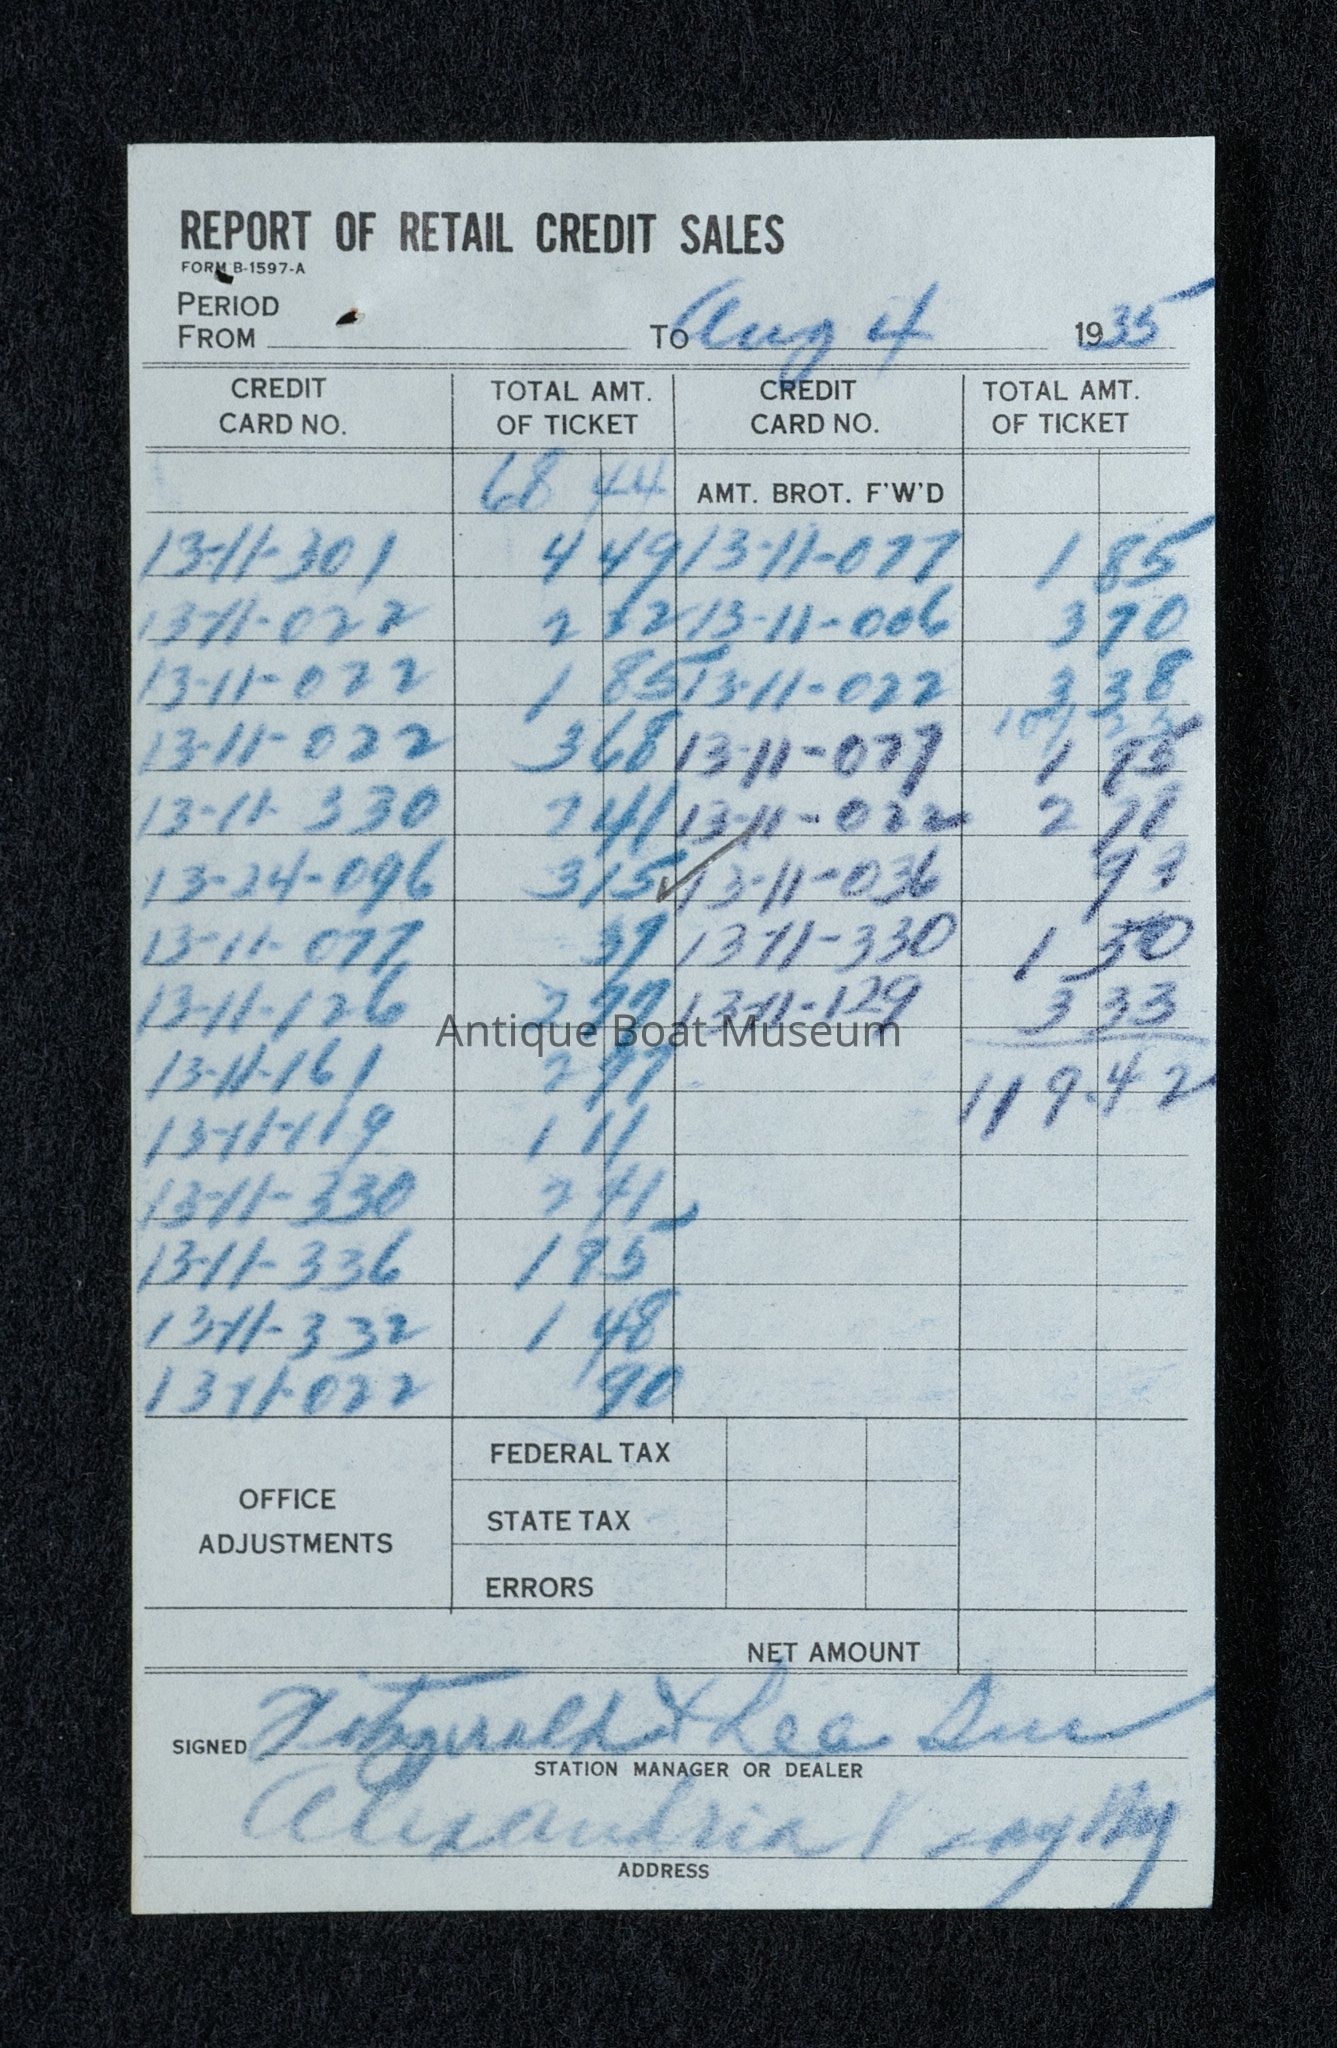 REPORT OF RETAIL CREDIT SALES
FORM B-1597-A
PERIOD
FROM To Aug 4 1935
CREDIT CARD NO. TOTAL AMT. OF TICKET CREDIT CARD NO. TOTAL AMT. OF TICKET
68 44 AMT. BROT. F'W'D
13-11-301 4 49 13-11-077 1 85
13-11-022 2 32 13-11-006 3 70
13-11-022 1 85 13-11-022 3 38
109 33
13-11-022 3 68 13-11-077 1 95
13-11-330 2 41 13-11-022 2 71
13-24-096 3 15 13-11-036 93
13-11-077 37 13-11-330 1 50
13-11-126 13-11-129 3 33
Antique Boat Museum
13-11-161 119.42
13-11-119 1 11
13-11-330 2 41
13-11-336 1 95
13-11-332 1 48
13-11-022 90
OFFICE ADJUSTMENTS
FEDERAL TAX
STATE TAX
ERRORS
NET AMOUNT
SIGNED Fitzgerald & Lee
STATION MANAGER OR DEALER
Alexandria Bay NY
ADDRESS